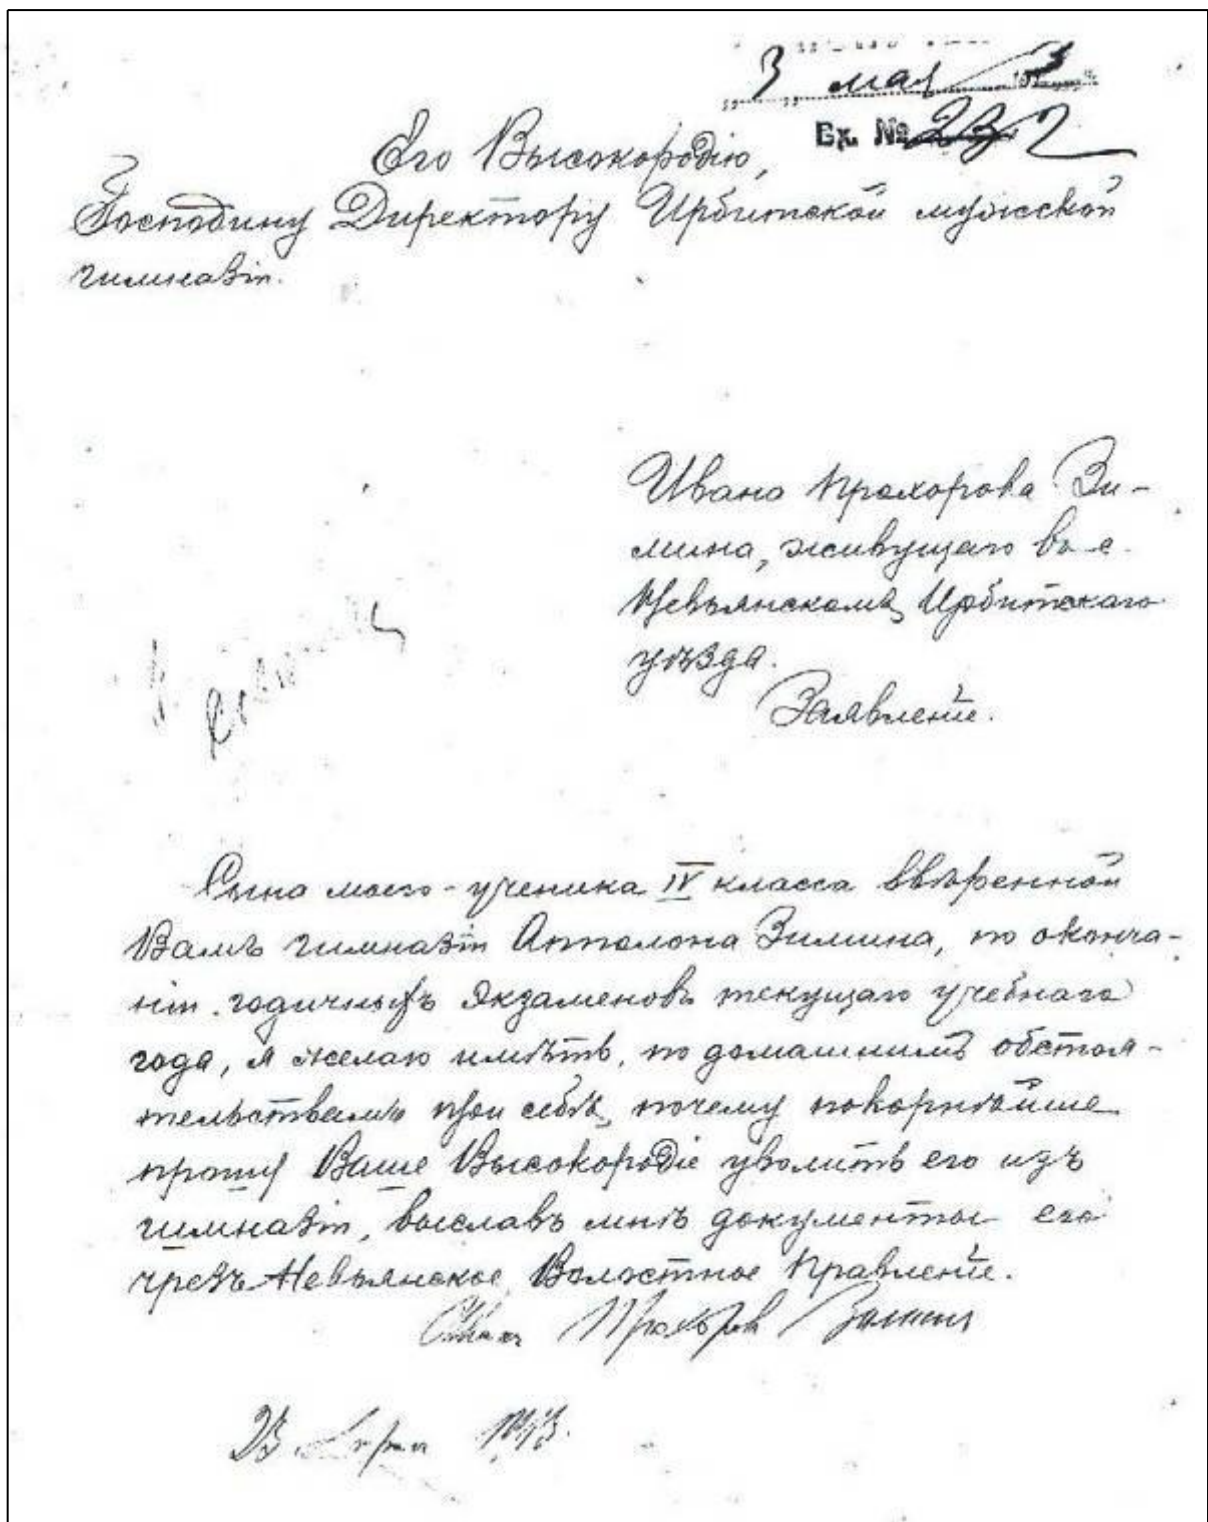 3 мая 1913
Вх. № 232
Его Высокородію,
Господину Директору Ирбитской мужской
гимназіи.
Ивана Прохорова Зи-
мина, живущаго въ с.
Невьянскомъ, Ирбитскаго
уѣзда.
Заявленіе.
Сына моего - ученика IV класса ввѣренной
Вамъ гимназіи Апполона Зимина, по оконча-
ніи годичныхъ экзаменовъ текущаго учебнаго
года, я желаю имѣть, по домашнимъ обстоя-
тельствамъ при себѣ, почему покорнѣйше
прошу Ваше Высокородіе уволить его изъ
гимназіи, выславъ мнѣ документы его
чрезъ Невьянское Волостное Правленіе.
Иванъ Прохоровъ Зиминъ
1913.